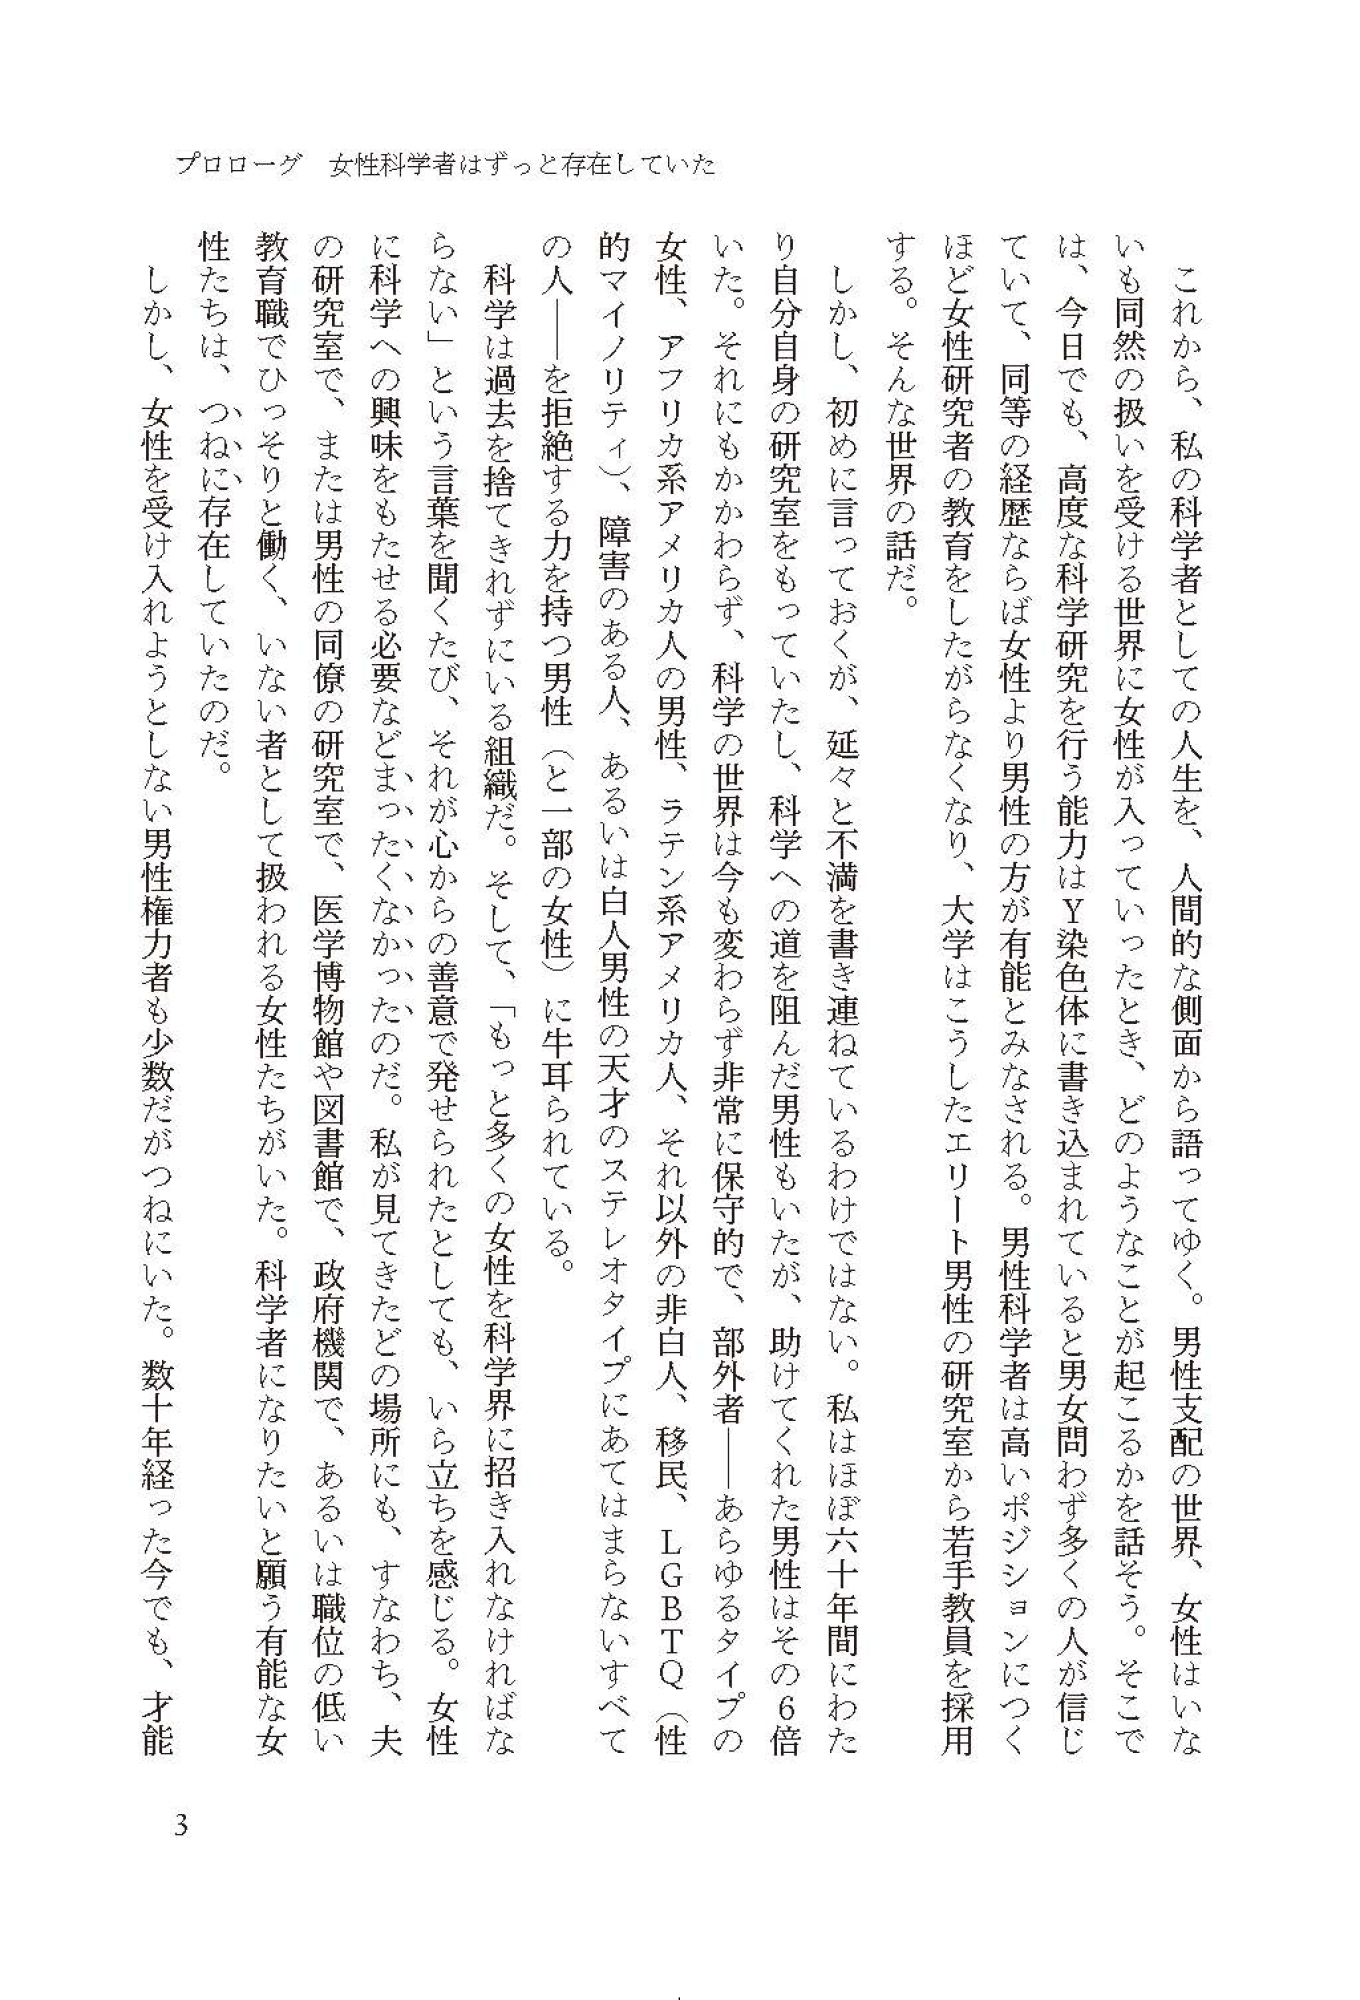 プロローグ　女性科学者はずっと存在していた
　これから、私の科学者としての人生を、人間的な側面から語ってゆく。男性支配の世界、女性はいな
いも同然の扱いを受ける世界に女性が入っていったとき、どのようなことが起こるかを話そう。そこで
は、今日でも、高度な科学研究を行う能力はY染色体に書き込まれていると男女問わず多くの人が信じ
ていて、同等の経歴ならば女性より男性の方が有能とみなされる。男性科学者は高いポジションにつく
ほど女性研究者の教育をしたがらなくなり、大学はこうしたエリート男性の研究室から若手教員を採用
する。そんな世界の話だ。
　しかし、初めに言っておくが、延々と不満を書き連ねているわけではない。私はほぼ六十年間にわた
り自分自身の研究室をもっていたし、科学への道を阻んだ男性もいたが、助けてくれた男性はその6倍
いた。それにもかかわらず、科学の世界は今も変わらず非常に保守的で、部外者――あらゆるタイプの
女性、アフリカ系アメリカ人の男性、ラテン系アメリカ人、それ以外の非白人、移民、LGBTQ（性
的マイノリティ）、障害のある人、あるいは白人男性の天才のステレオタイプにあてはまらないすべて
の人――を拒絶する力を持つ男性（と一部の女性）に牛耳られている。
　科学は過去を捨てきれずにいる組織だ。そして、「もっと多くの女性を科学界に招き入れなければな
らない」という言葉を聞くたび、それが心からの善意で発せられたとしても、いら立ちを感じる。女性
に科学への興味をもたせる必要などまったくなかったのだ。私が見てきたどの場所にも、すなわち、夫
の研究室で、または男性の同僚の研究室で、医学博物館や図書館で、政府機関で、あるいは職位の低い
教育職でひっそりと働く、いない者として扱われる女性たちがいた。科学者になりたいと願う有能な女
性たちは、つねに存在していたのだ。
　しかし、女性を受け入れようとしない男性権力者も少数だがつねにいた。数十年経った今でも、才能
3